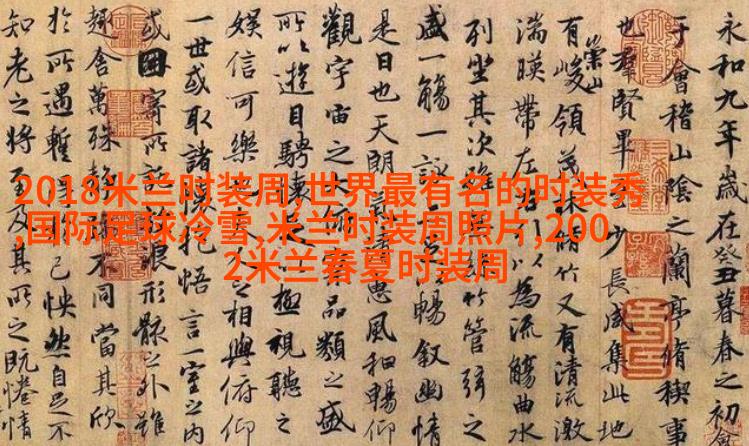 2018米兰时装周,世界最有名的时装秀
,国际足球冷雪,米兰时装周照片,200
2米兰春夏时装周
永和九年歲在癸丑暮春之初會
于會稽山陰之蘭亭脩稧事
也羣賢畢少長咸集此地
有崇山峻領茂林竹又有清流激
湍暎帶左以為流觴曲水
列坐其次雖竹管弦之
盛一觴一詠以暢敘幽情
是日也天朗惠風和暢仰
觀宇宙之大品類之盛
所以遊目騁以極視聽之
娛信可樂之相與俯仰
一世或取諸悟言一室之內
或因寄所浪形骸之外雖
趣舍萬殊不同當其欣
於所遇蹔己怏然自足不
知老之將至及其所之既惓情